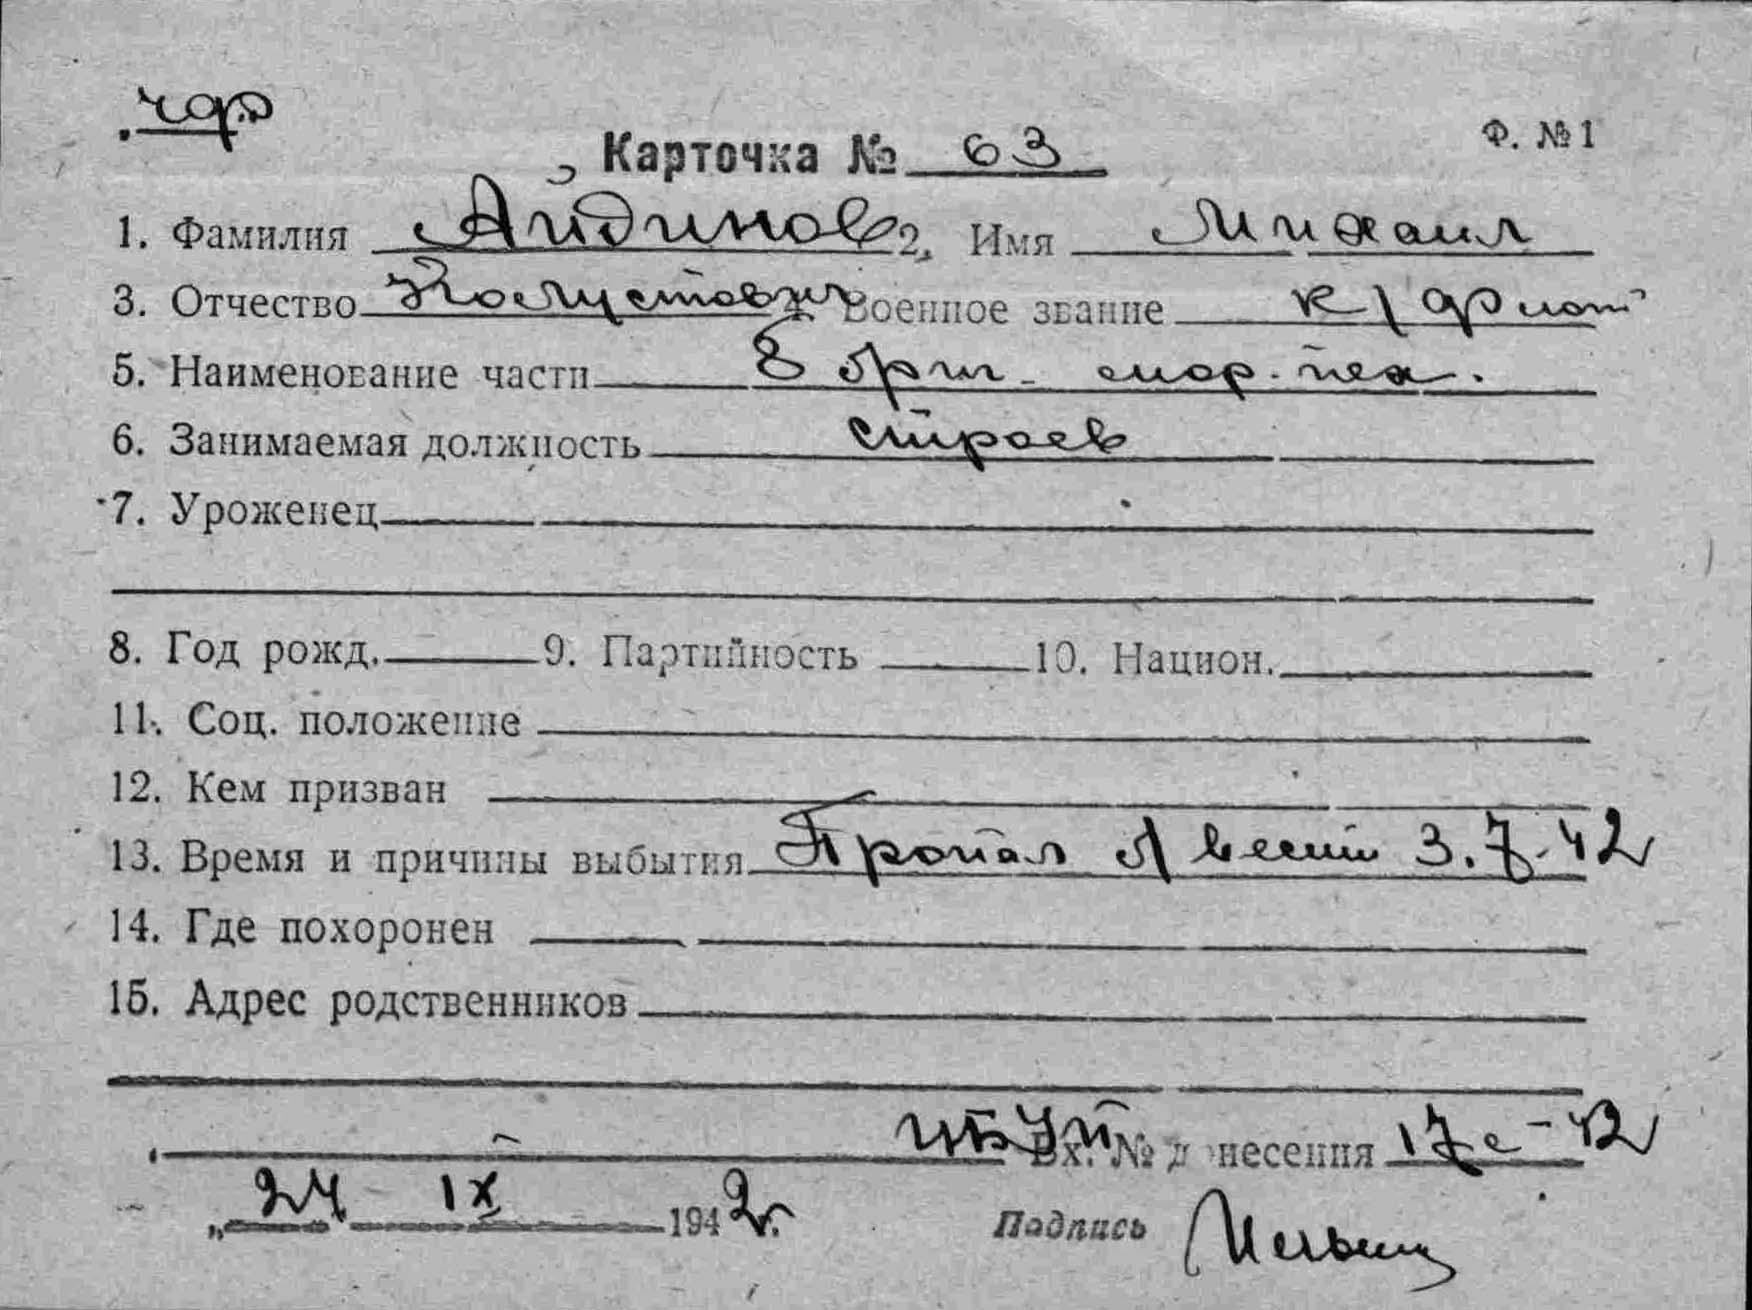 чф
Карточка № 63
Ф. № 1
1. Фамилия Айдинов 2. Имя Михаил
3. Отчество 4. Военное звание к/флот
5. Наименование части 8 бриг. мор. пех.
6. Занимаемая должность строев
7. Уроженец
8. Год рожд. 9. Партийность 10. Национ.
11. Соц. положение
12. Кем призван
13. Время и причины выбытия Пропал б/вести 3.7.42
14. Где похоронен
15. Адрес родственников
Вх. № донесения 17с-42
„24 IX 1942г.
Подпись